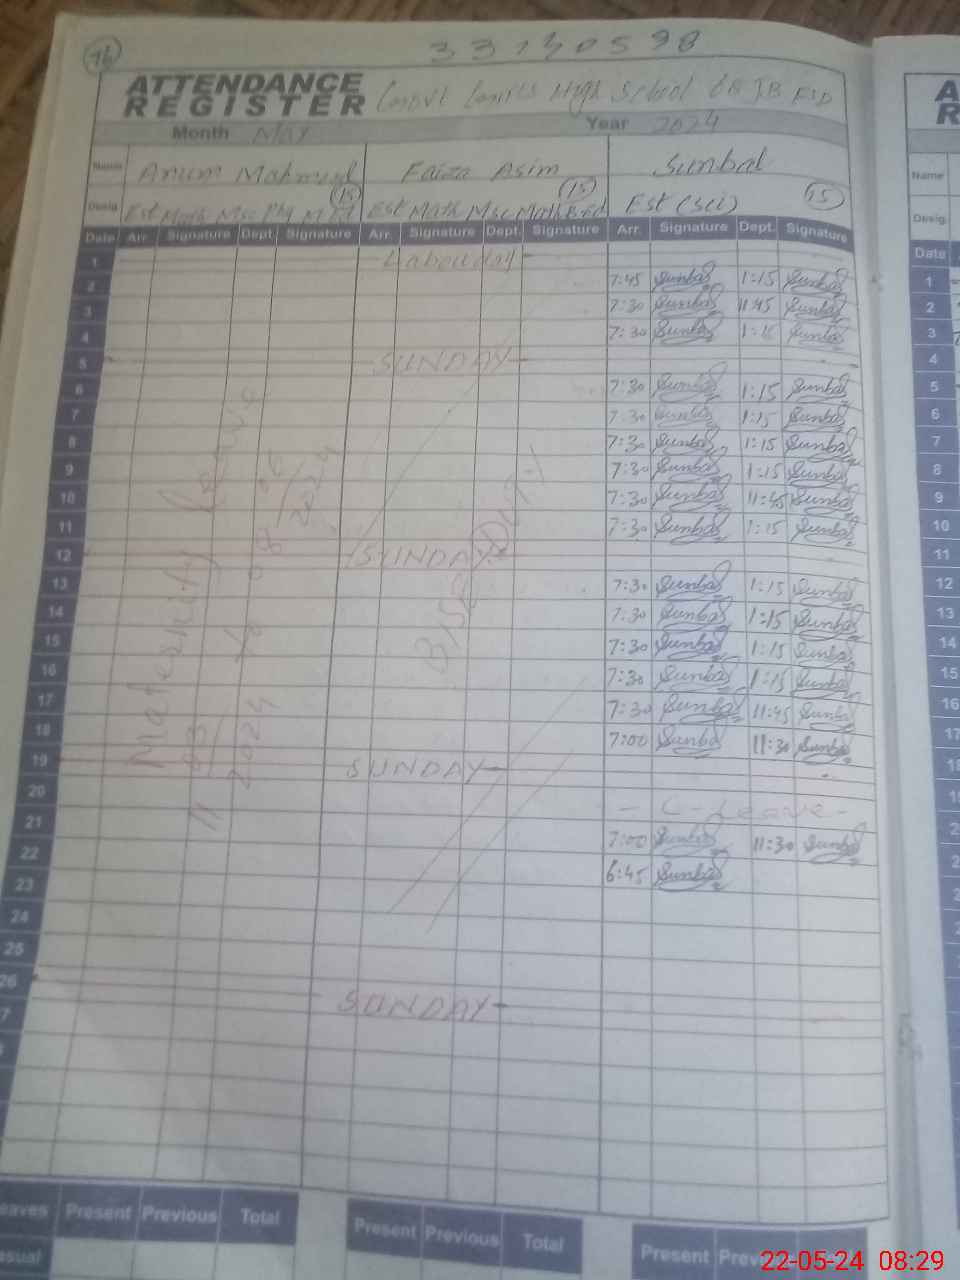 16
33130598
ATTENDANCE REGISTER
Govt Girls High School JB FSD
Month May Year 2024
Name Anum Mahmood Faiza Asim Sunbal
15 15 15
Desig. Est Math Msc Phy M.Ed Est Math Msc Math B.Ed Est (Sci)
Date Arr. Signature Dept. Signature Arr. Signature Dept. Signature Arr. Signature Dept. Signature
1 Labour day
2 7:45 Sunbal 1:15 Sunbal
3 7:30 Sunbal 11:45 Sunbal
4 7:30 Sunbal 1:15 Sunbal
5 SUNDAY
6 7:30 Sunbal 1:15 Sunbal
7 7:30 Sunbal 1:15 Sunbal
8 7:30 Sunbal 1:15 Sunbal
9 7:30 Sunbal 1:15 Sunbal
10 7:30 Sunbal 11:45 Sunbal
11 7:30 Sunbal 1:15 Sunbal
12 SUNDAY
13 7:30 Sunbal 1:15 Sunbal
14 7:30 Sunbal 1:15 Sunbal
15 7:30 Sunbal 1:15 Sunbal
16 7:30 Sunbal 1:15 Sunbal
17 7:30 Sunbal 11:45 Sunbal
18 7:00 Sunbal 11:30 Sunbal
19 SUNDAY
20 - C-Leave -
21 7:00 Sunbal 11:30 Sunbal
22 6:45 Sunbal
23
24
25
26 SUNDAY
7
Maternity Leave
11 03 2024 to 08 06 2024
BISE DUTY
eaves Present Previous Total
Present Previous Total
Present
asual
A
R
Name
Desig.
Date
1
2
3
4
5
6
7
8
9
10
11
12
13
14
15
16
17
22-05-24 08:29